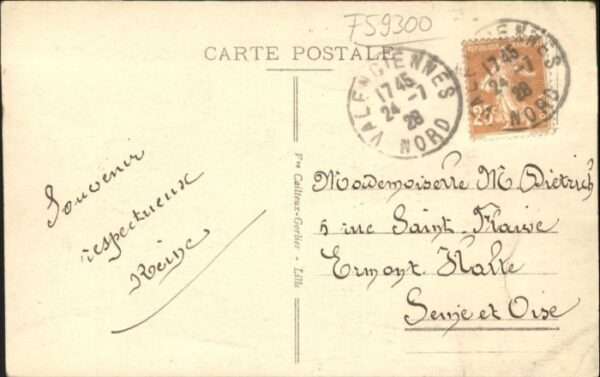 F59300
CARTE POSTALE
VALENCIENNES
17 45
24 - 7
28
NORD
VALENCIENNES
17 45
24 - 7
28
NORD
25c
Souvenir
respectueux
Reine
Vve Cailteux-Gerlier - Lille
Mademoiselle M Dietrich
5 rue Saint-Flaive
Ermont Halte
Seine et Oise